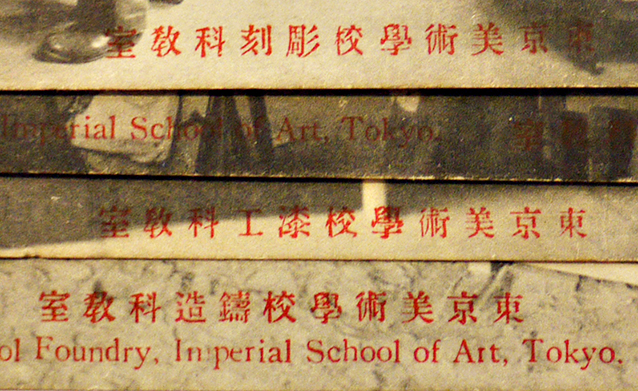 東京美術學校彫刻科教室
Imperial School of Art, Tokyo.
東京美術學校漆工科教室
東京美術學校鑄造科教室
ol Foundry, Imperial School of Art, Tokyo.